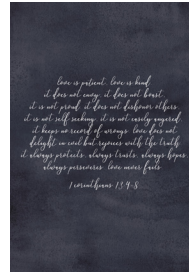 love is patient, love is kind.
it does not envy, it does not boast,
it is not proud. it does not dishonor others,
it is not self-seeking, it is not easily angered,
it keeps no record of wrongs. love does not
delight in evil but rejoices with the truth.
it always protects, always trusts, always hopes,
always perseveres. love never fails.
1 corinthians 13:4-8